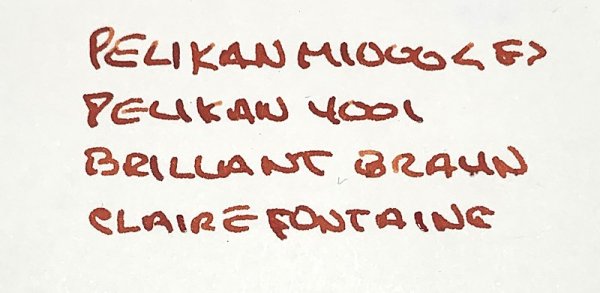 PELIKAN M1000 <F>
PELIKAN 4001
BRILLANT BRAUN
CLAIREFONTAINE